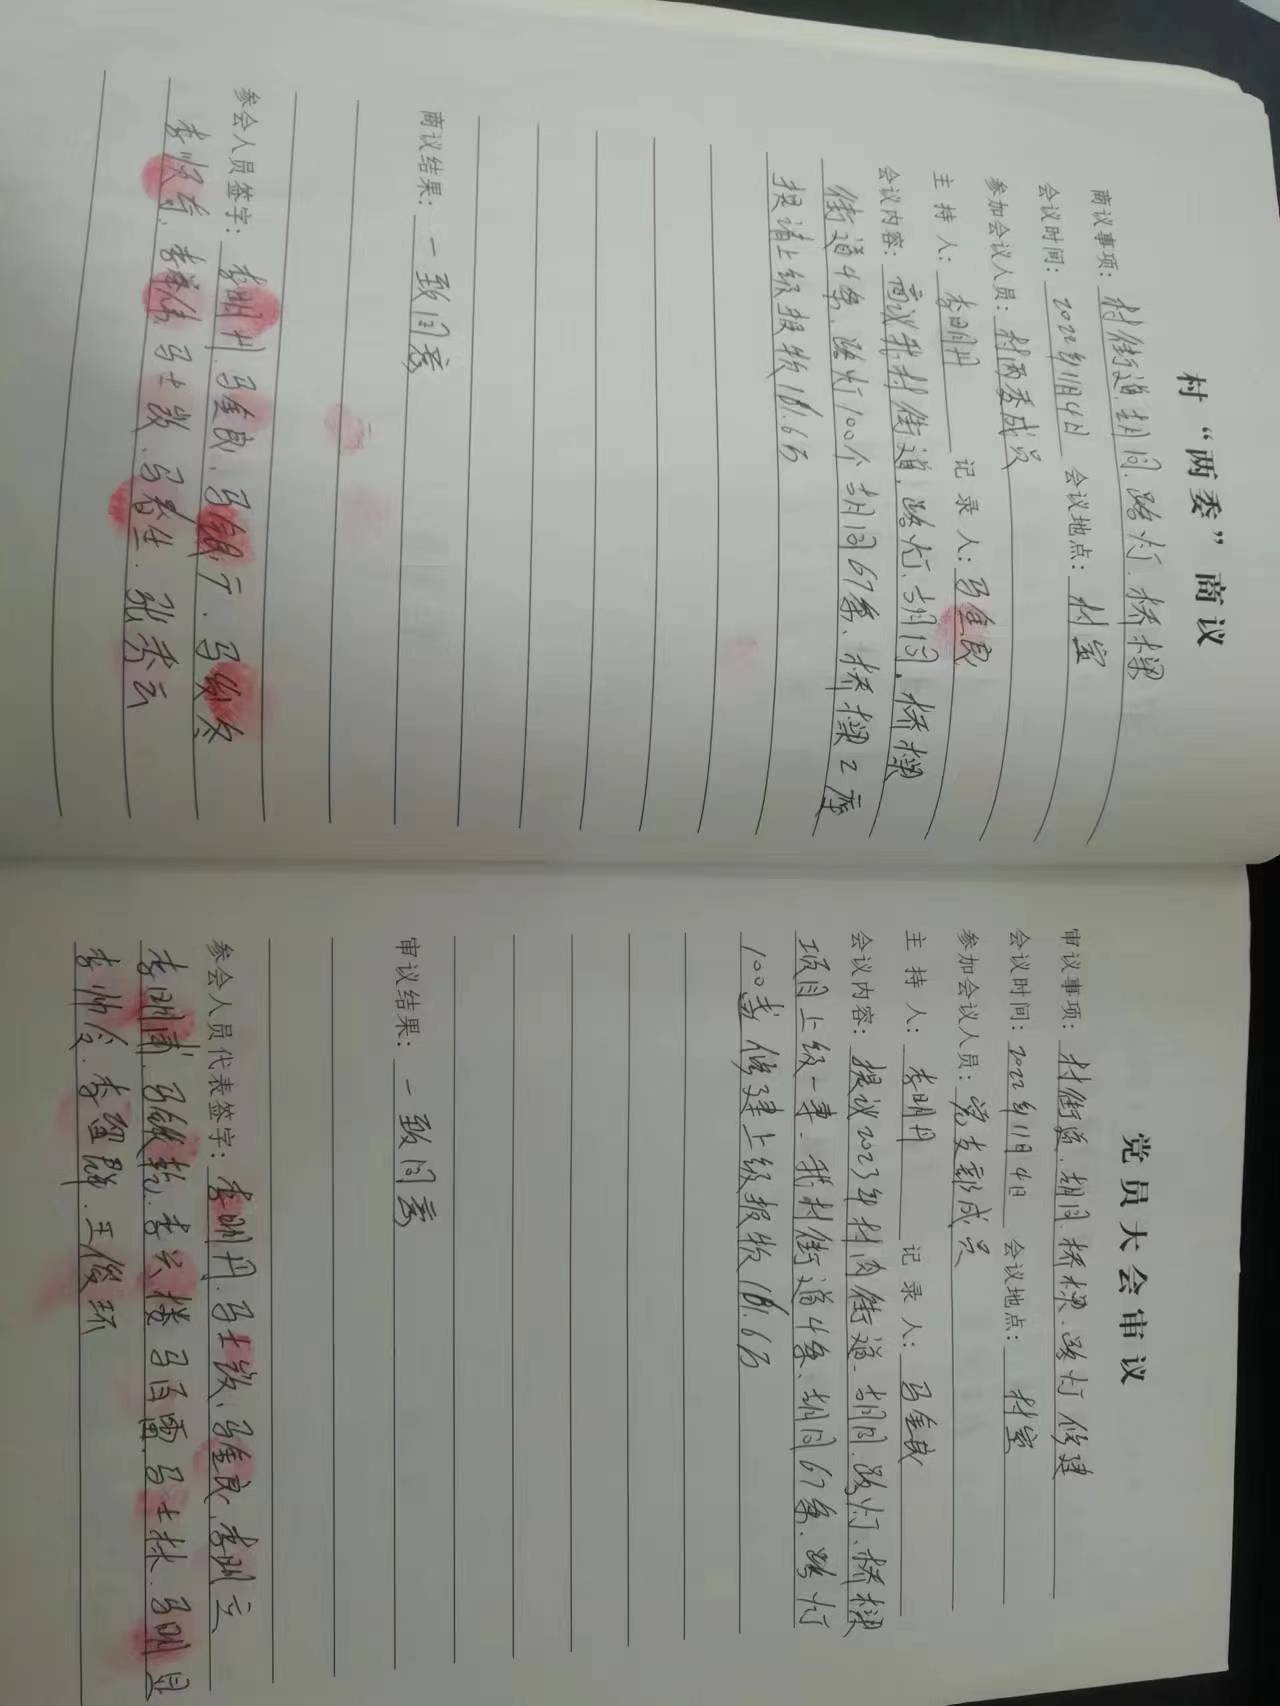 村“两委”商议
商议事项：村街道胡同、路灯、桥樑
会议时间：2022年11月4日 会议地点：村室
参加会议人员：村两委成员
主持人：李明丹 记录人：马金良
会议内容：商议我村街道、路灯、胡同、桥樑
街道4条、路灯100个胡同67条、桥樑2座
提请上级报牧181.6万
商议结果：一致同意
参会人员签字：李明丹、马金良、马银斤、马俊冬
李顺有、李 马士敬、马春生、张秀云
党员大会审议
审议事项：村街道、胡同、桥樑、路灯修建
会议时间：2022年11月4日 会议地点：村室
参加会议人员：党支部成员
主持人：李明丹 记录人：马金良
会议内容：提议2023年村内街道、胡同、路灯、桥樑
项目上级一事、我村街道4条、胡同67条、路灯
100盏修建上级报牧181.6万
审议结果：一致同意
参会人员代表签字：李明丹、马士敬、马金良、李明立
李明甫、马 李兴楼 马百雷、马士林、马明
李帅令、李 王俊环